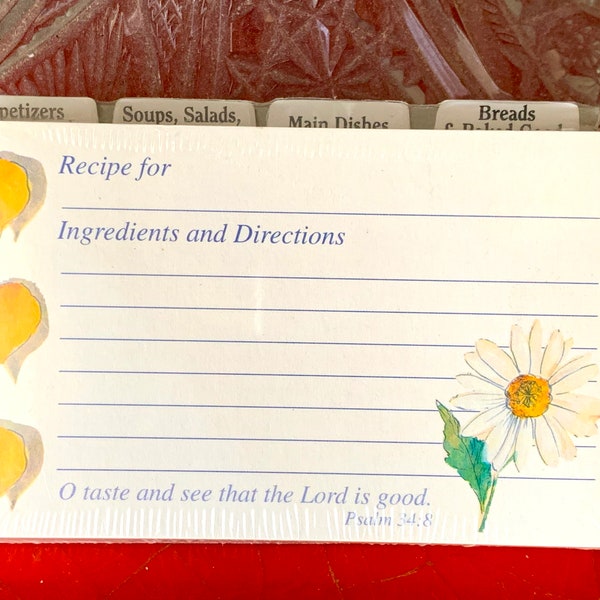 petizers
Soups, Salads,
Main Dishes
Breads
& Baked Good
Recipe for
Ingredients and Directions
O taste and see that the Lord is good.
Psalm 34:8